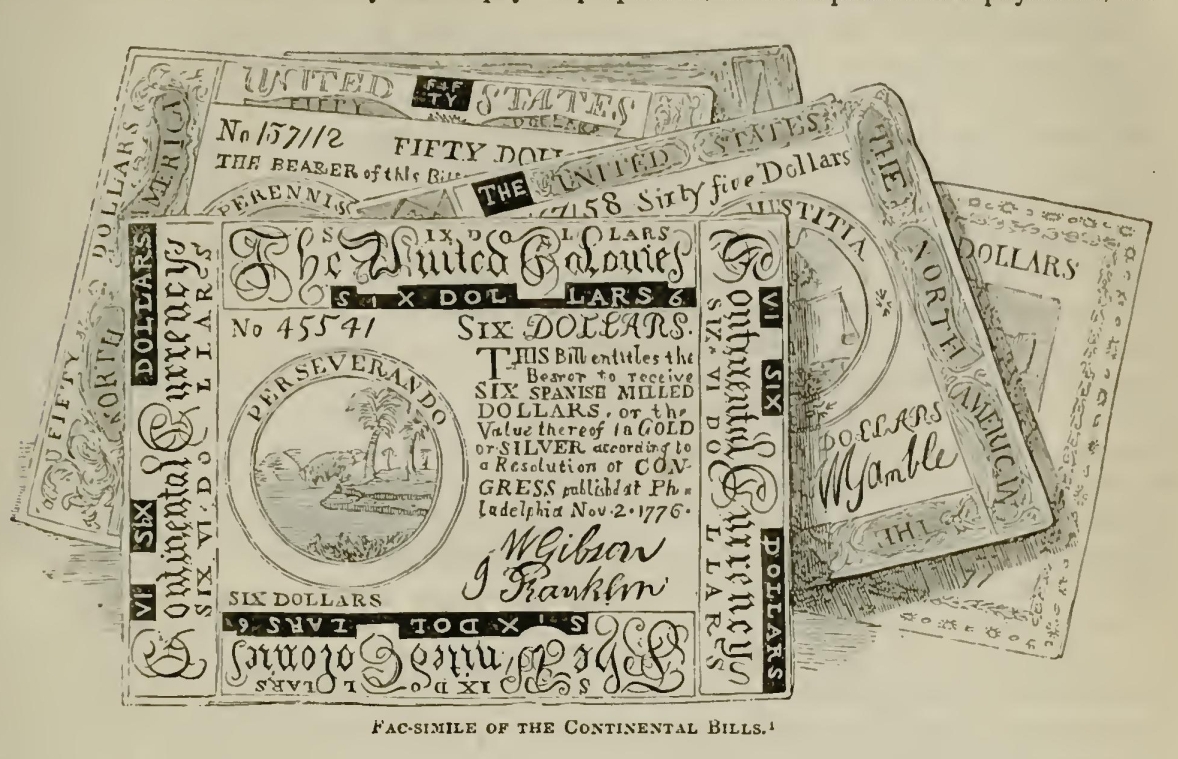 UNITED FIF TY STATES
FIFTY DOLLARS
No 157112 FIFTY DOLL
THE BEARER of this Bill
PERENNIS
FIFTY DOLLARS
NORTH AMERICA
THE UNITED STATES
7158 Sixty five Dollars
JUSTITIA
DOLLARS
WGamble
THE
NORTH
AMERICA
THE
DOLLARS
SIX DOLLARS
The United Colonies
SIX DOLLARS 6
No 45541 SIX DOLLARS.
PERSEVERANDO
THIS Bill entitles the
Bearer to receive
SIX SPANISH MILLED
DOLLARS, or the
Value thereof in GOLD
or SILVER according to
a Resolution of CON-
GRESS publish'd at Phi-
ladelphia Nov. 2. 1776.
WGibson
J Franklin
SIX DOLLARS
VI SIX DOLLARS
Continental Currency
SIX. VI. DOLLARS
Continental Currency
SIX. VI DOLLARS
VI SIX DOLLARS
SIX DOLLARS 6
The United Colonies
SIX DOLLARS
FAC-SIMILE OF THE CONTINENTAL BILLS.¹